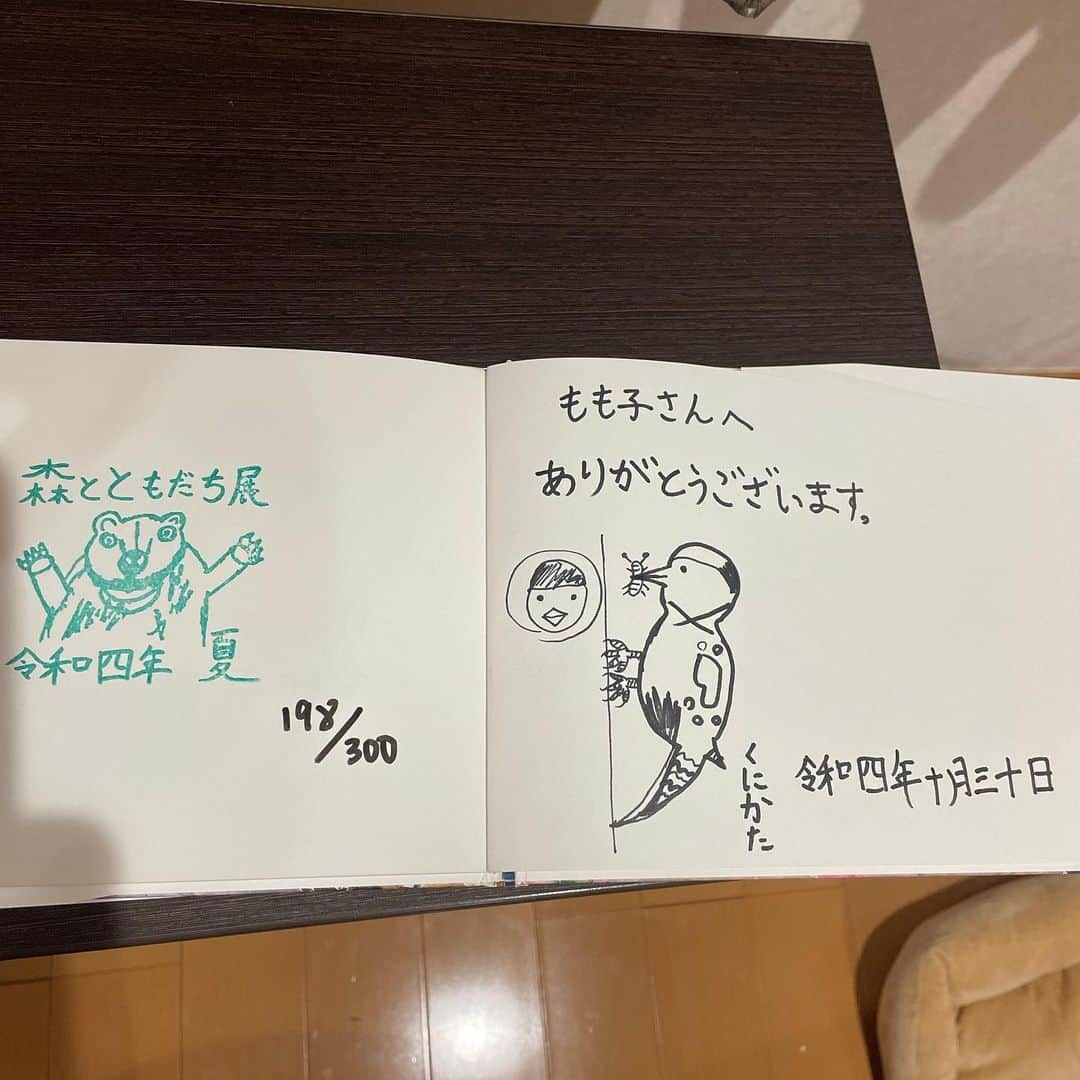 森とともだち展
令和四年 夏
198/300
もも子さんへ
ありがとうございます。
くにかた
令和四年十月三十日